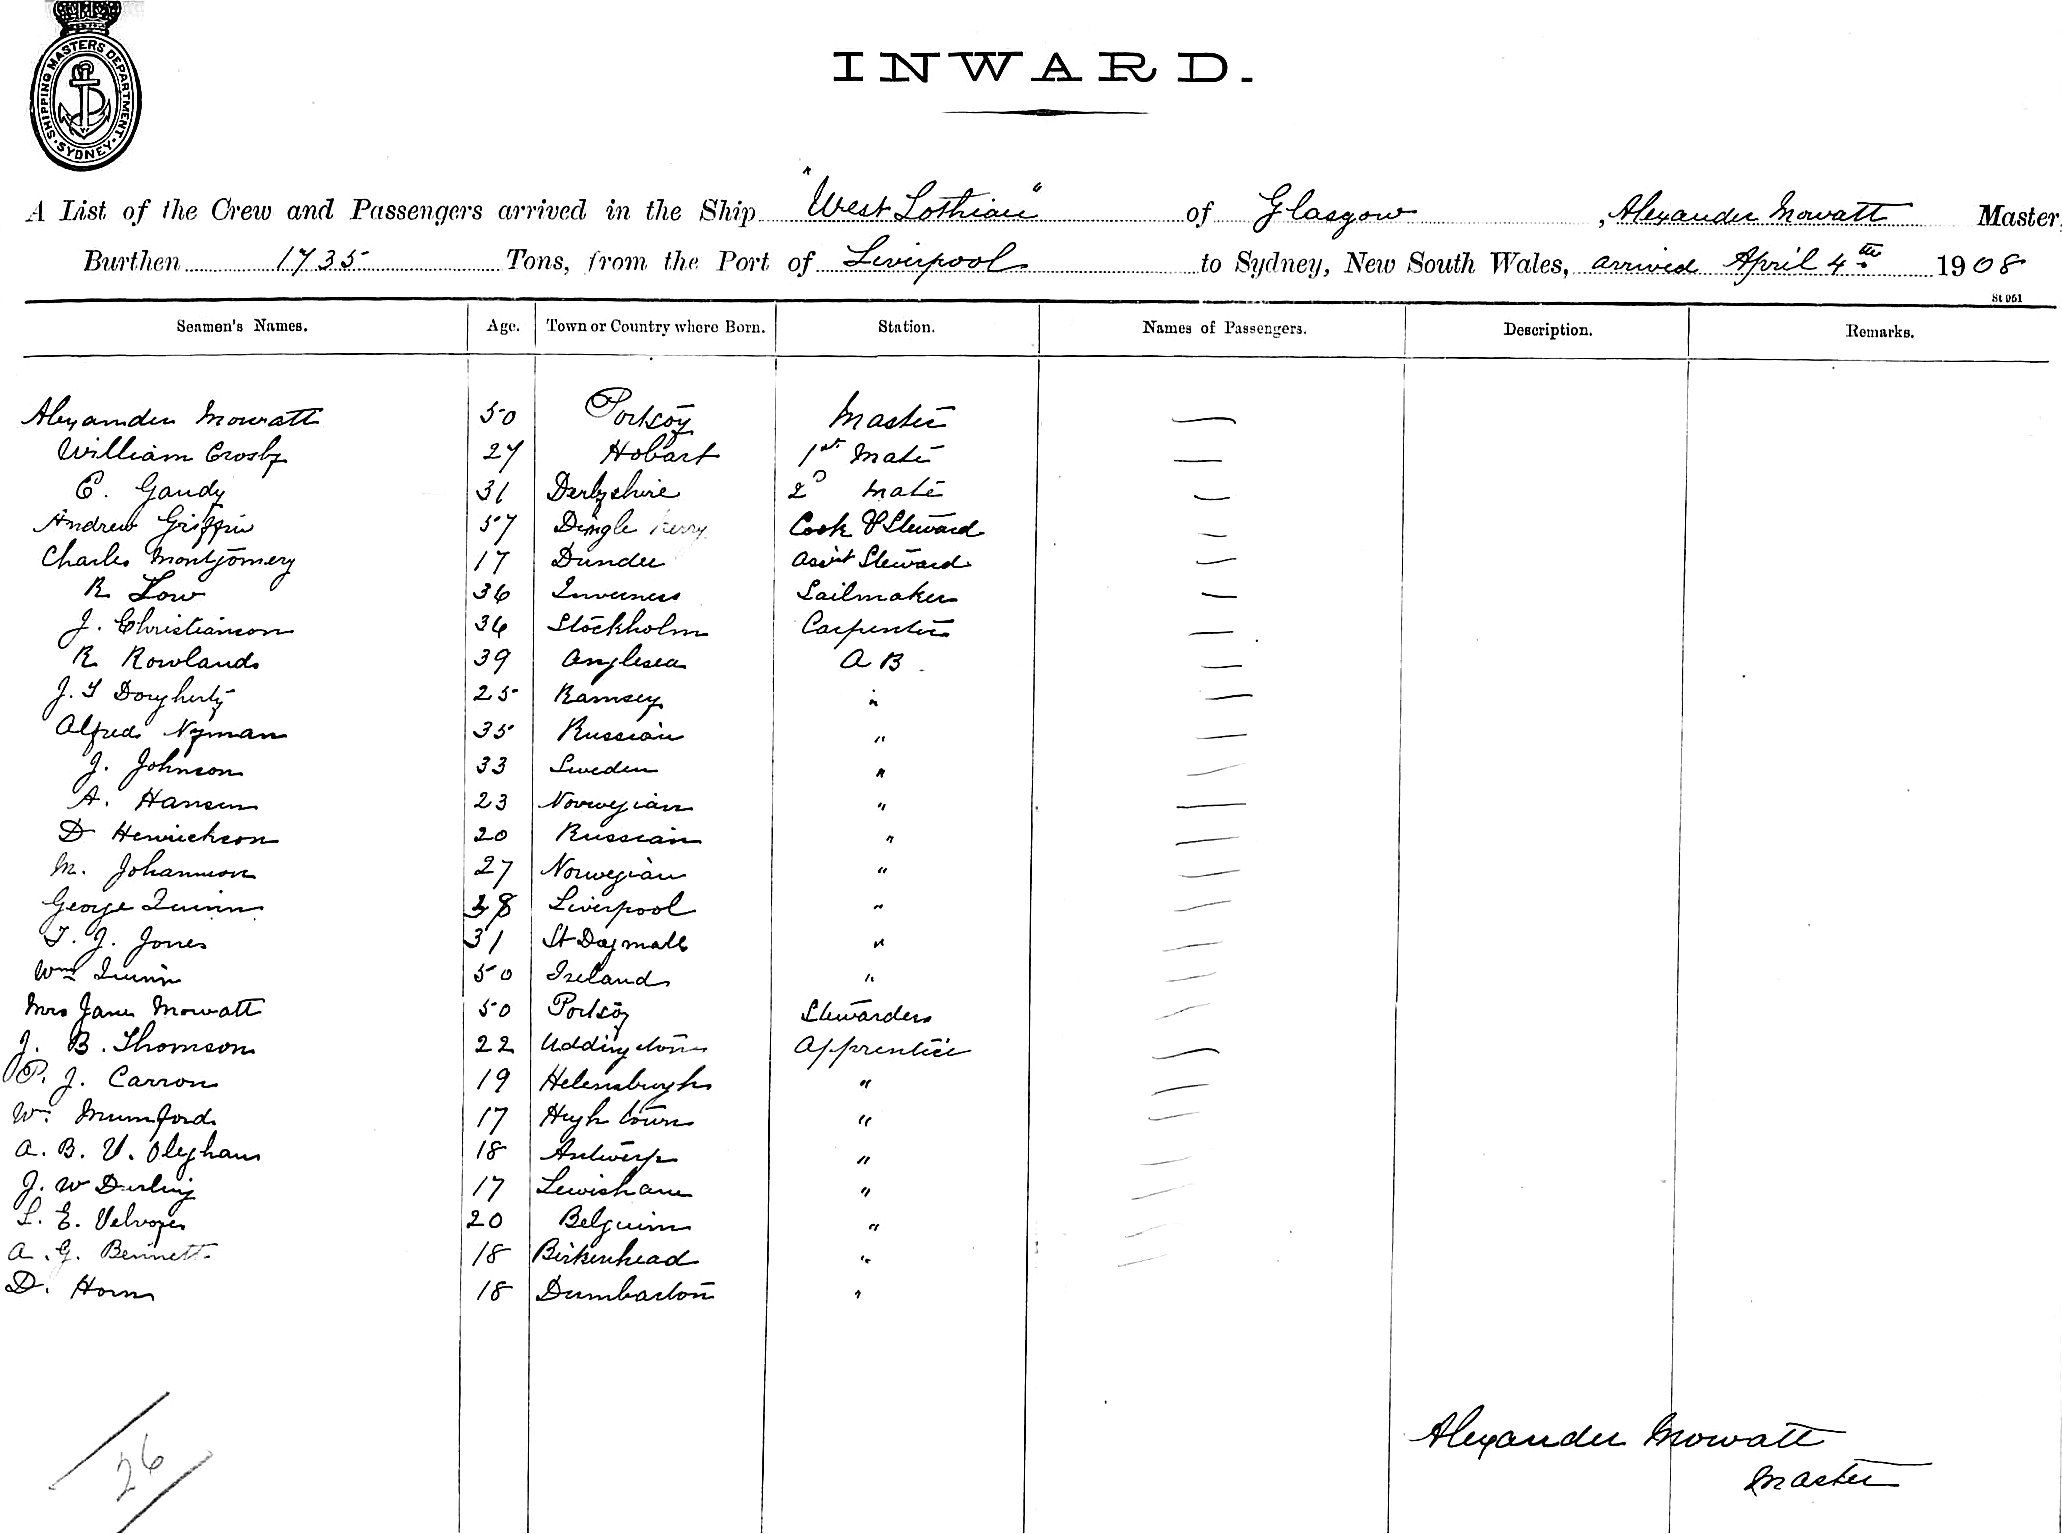 SHIPPING MASTERS DEPARTMENT
SYDNEY
INWARD.
A List of the Crew and Passengers arrived in the Ship "West Lothian" of Glasgow, Alexander Mowatt Master,
Burthen 1735 Tons, from the Port of Liverpool to Sydney, New South Wales, arrived April 4th 1908
St 951
Seamen's Names. Age. Town or Country where Born. Station. Names of Passengers. Description. Remarks.
Alexander Mowatt 50 Portsoy Master —
William Crosby 27 Hobart 1st Mate —
E. Gandy 31 Derbyshire 2D Mate —
Andrew Griffin 57 Dingle Kerry Cook & Steward —
Charles Montgomery 17 Dundee Assist Steward —
R Low 36 Inverness Sailmaker —
J. Christianson 36 Stockholm Carpenter —
R Rowlands 39 Anglesea A B —
J. T Dougherty 25 Ramsey " —
Alfred Nyman 35 Russian " —
J. Johnson 33 Sweden " —
A. Hansen 23 Norwegian " —
D Henrickson 20 Russian " —
M. Johannson 27 Norwegian " —
George Quinn 38 Liverpool " —
T. J. Jones 31 St Dogmalls " —
Wm Quinn 50 Ireland " —
Mrs Jane Mowatt 50 Portsoy Stewardess —
J. B. Thomson 22 Uddington Apprentice —
P. J. Carron 19 Helensburgh " —
Wm Mumford 17 High town " —
A. B. V. Olegham 18 Antwerp " —
J. W Durling 17 Lewisham " —
L. E. 20 Belguim " —
A. G. Bennett 18 Birkenhead " —
D. Horn 18 Dumbarton "
26
Alexander Mowatt
Master